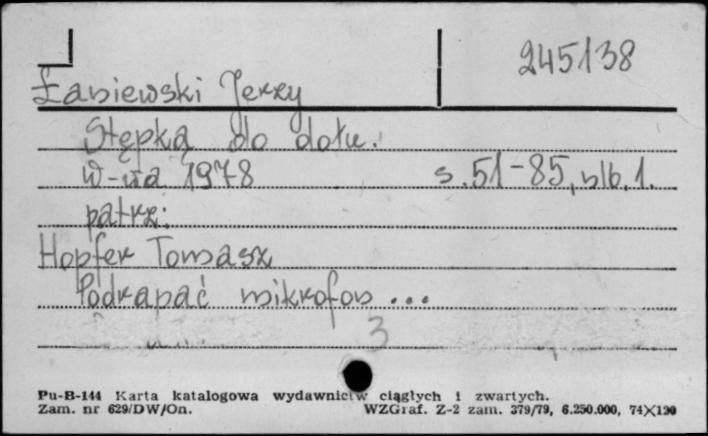 245138
Łaniewski Jerzy
Stępką do dołu.
W-wa 1978 s. 51-85, nlb. 1.
patrz:
Hopfer Tomasz
Podrapać mikrofon ...
3
Pu-B-144 Karta katalogowa wydawnictw ciągłych i zwartych.
Zam. nr 629/DW/On. WZGraf. Z-2 zam. 379/79, 6.250.000, 74X120